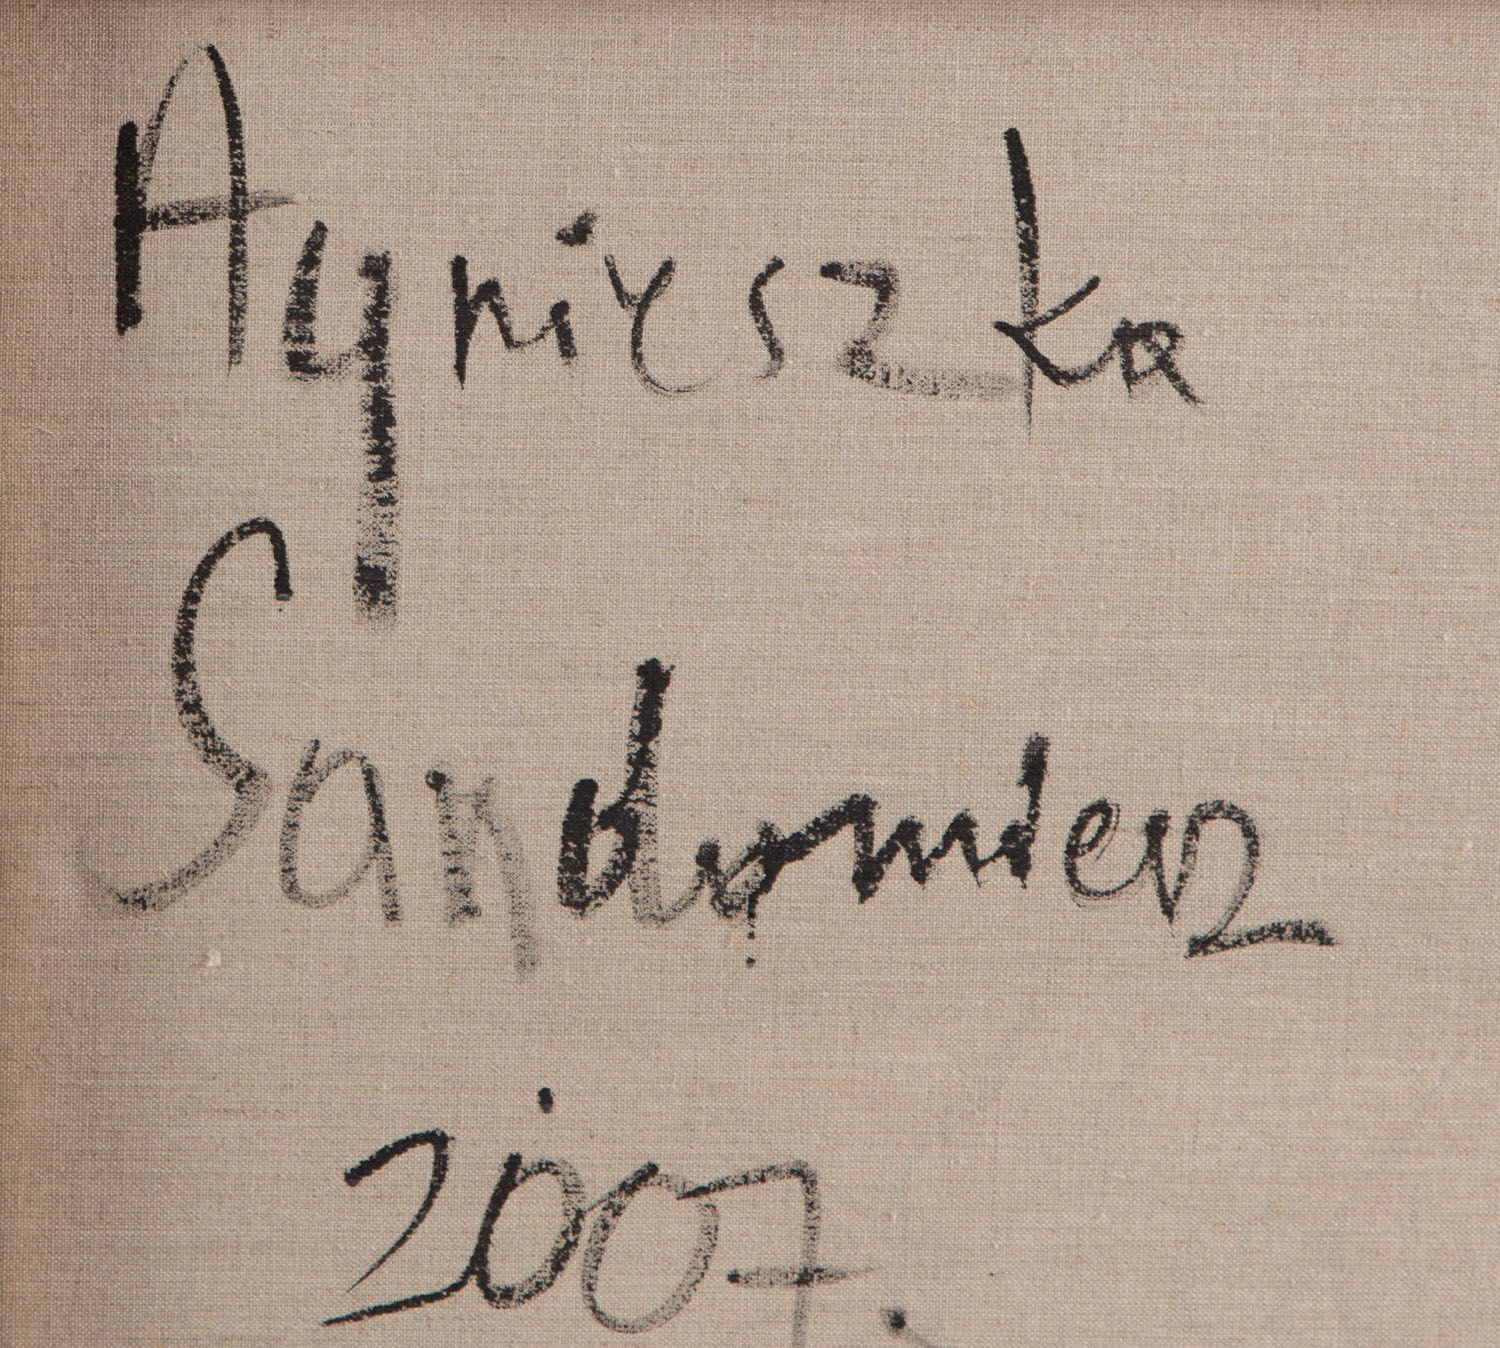 Agnieszka
Sandomierz
2007.